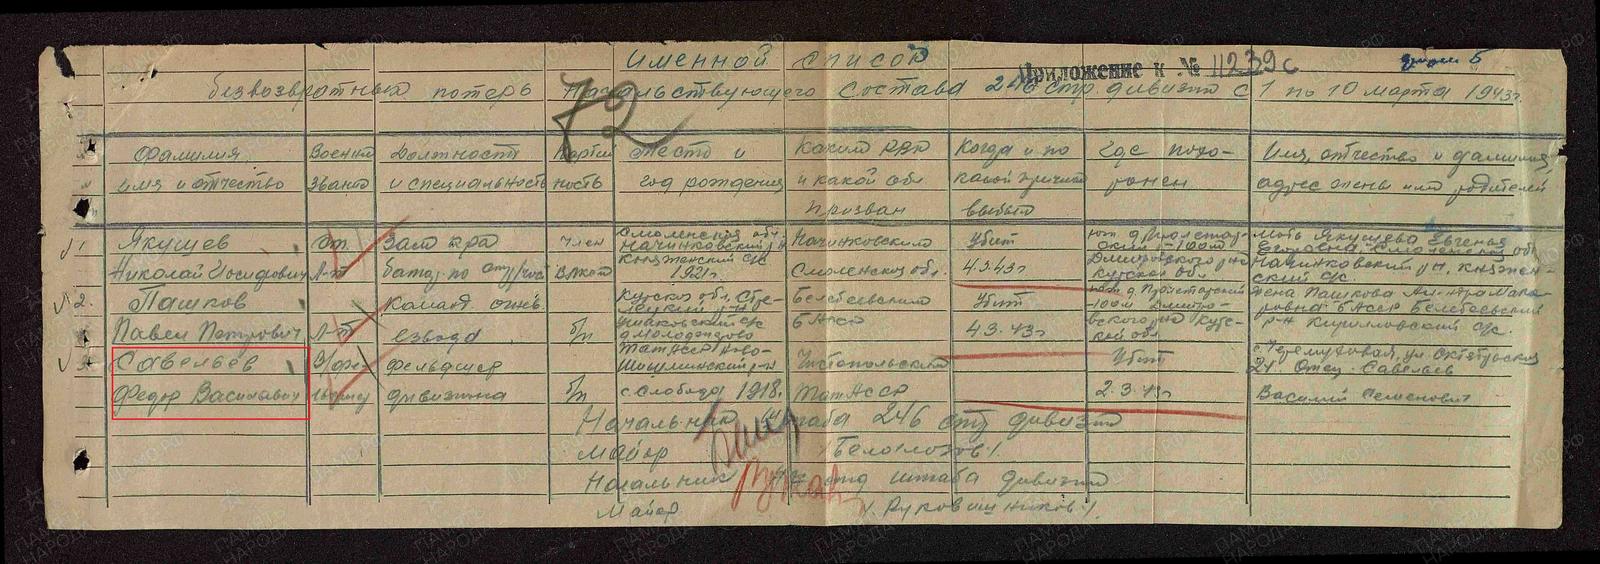 Именной список
Приложение к № 11239с
безвозвратных потерь начальствующего состава 246 стр. дивизии с 1 по 10 марта 1943г.
72
Фамилия имя и отчество
Военн звание
Должность и специальность
Партийность
Место и год рождения
Каким РВК и какой обл призван
Когда и по какой причине выбыл
Где похоронен
Имя, отчество и фамилия, адрес жены или родителей
1
Якушев Николай Иосифович
Ст. Л-т
Зам к-ра батал. по стр/части
член ВЛКСМ
Смоленская обл. Починковский р-н Княженский с/с 1921г
Починковский Смоленской обл.
Убит 4.3.43г
Дмитровского р-на Курской обл.
Мать Якушева Евгения
Смоленская обл Починковский р-н. Княженский с/с.
2.
Пашков Павел Петрович
Л-т
Команд огнев. взвода
б/п
Курская обл.
Белебеевским БАССР
Убит 4.3.43г
Дмитровского р-на Курской обл
жена Пашкова
БАССР Белебеевский р-н Кирилловский с/с.
3.
Савельев Федор Васильевич
фельдшер дивизиона
б/п
ТатАССР Ново-Шешминский р-н с. Слобода 1918г.
Чистопольский ТатАССР
Убит 2.3.43г
ул. Октябрьская 21. Отец Савельев Василий Семенович
Начальник штаба 246 стр дивизии
Майор /Белоглазов/.
Начальник 4 отд штаба дивизии
Майор /Рукавишников/.